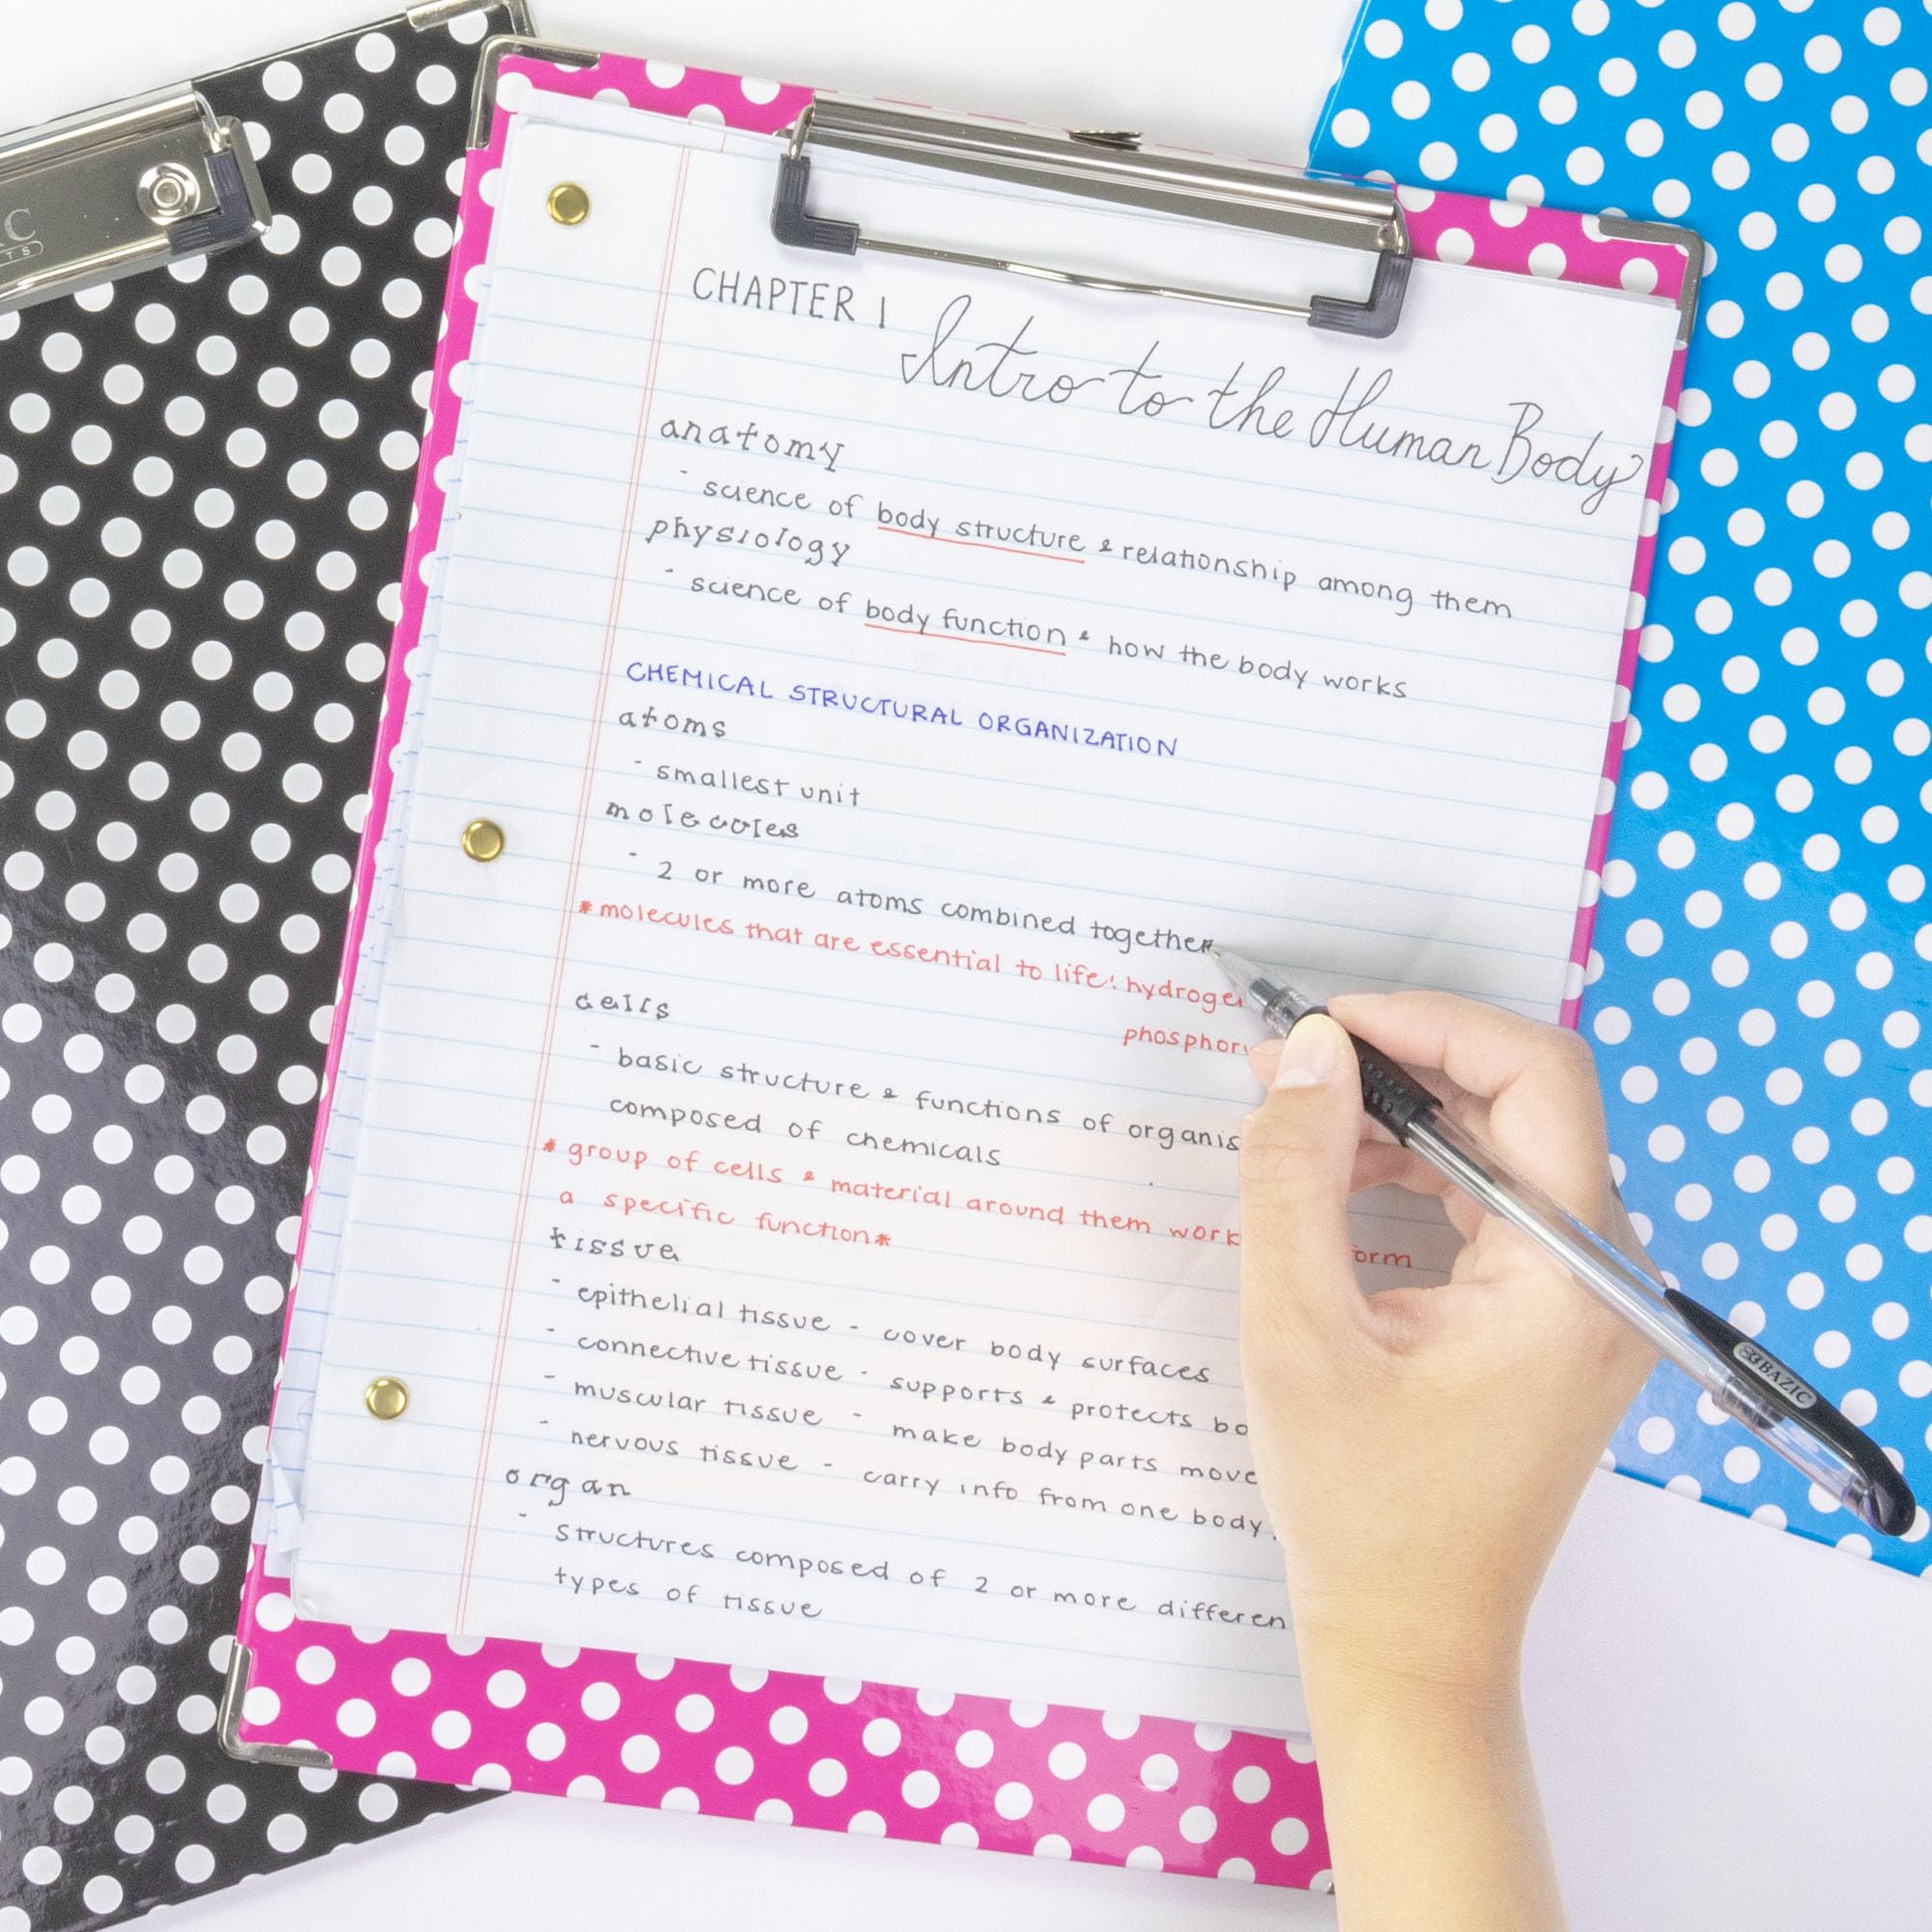 CHAPTER 1 Intro to the Human Body
anatomy
- science of body structure & relationship among them
physiology
- science of body function & how the body works
CHEMICAL STRUCTURAL ORGANIZATION
atoms
- smallest unit
molecules
- 2 or more atoms combined together
*molecules that are essential to life: hydroge
phosphor
cells
- basic structure & functions of organis
composed of chemicals
* group of cells & material around them work orm
a specific function*
tissue
- epithelial tissue - cover body surfaces
- connective tissue - supports & protects bo
- muscular tissue - make body parts move
- nervous tissue - carry info from one body
organ
- structures composed of 2 or more differen
types of tissue
BAZIC